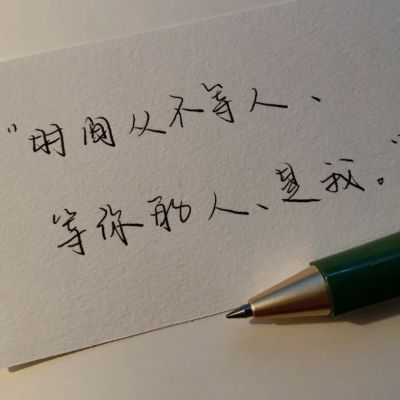 "时间从不等人、
等你的人、是我。"